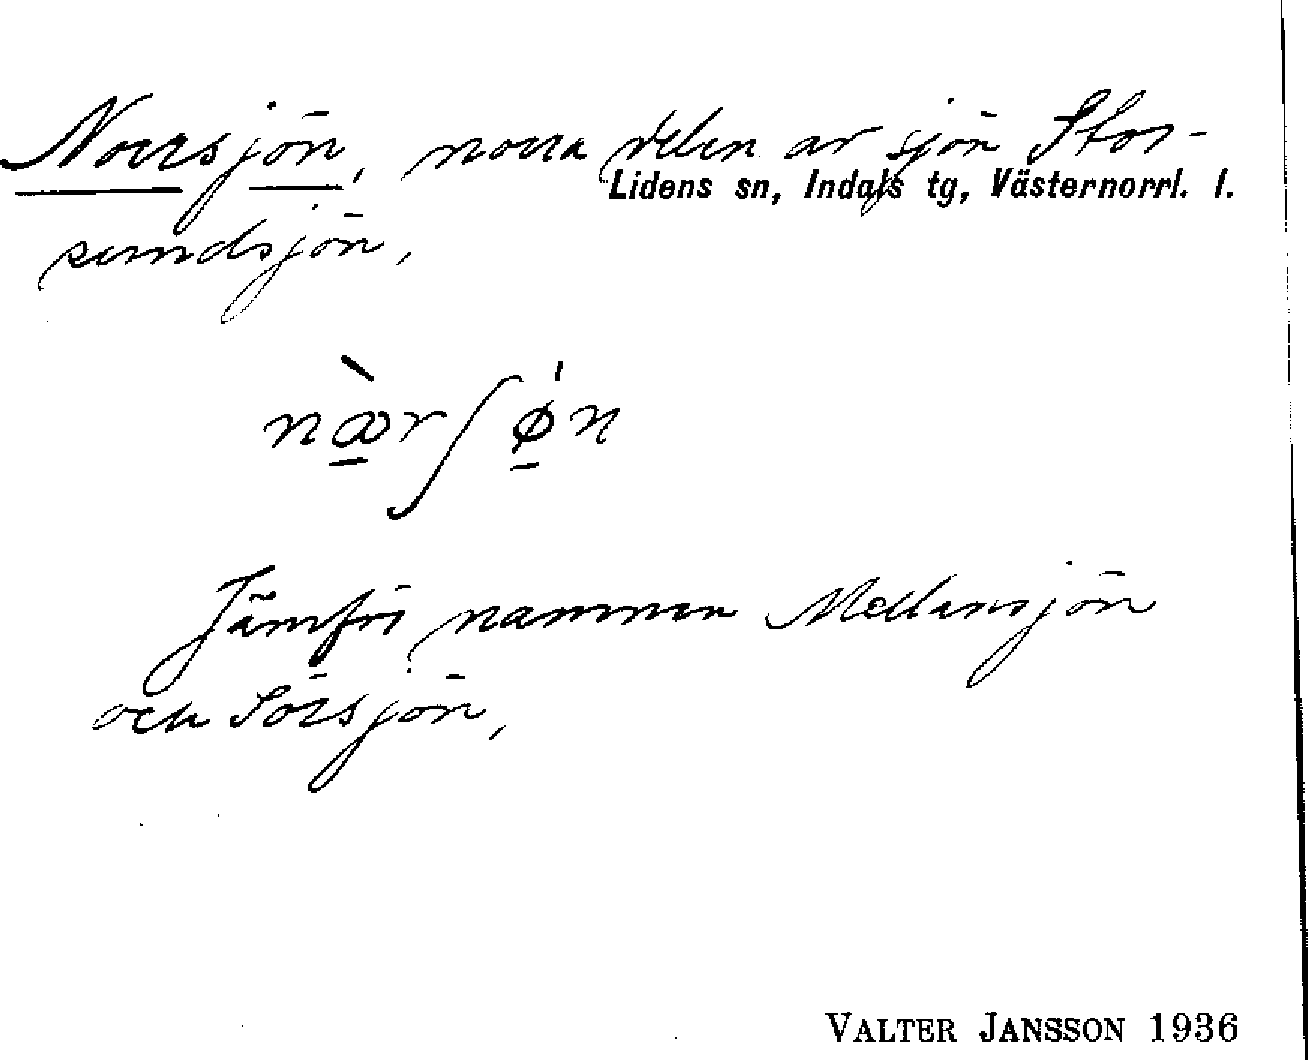 Norrsjön, norra delen av sjön Stor-
Lidens sn, Indals tg, Västernorrl. l.
sundsjön,
næ̠̀rʃǿ̠n
Jämför namnen Mellansjön
och Sörsjön,
VALTER JANSSON 1936